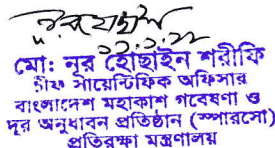 মো: নূর হোছাইন শরীফি
চীফ সায়েন্টিফিক অফিসার
বাংলাদেশ মহাকাশ গবেষণা ও
দূর অনুধাবন প্রতিষ্ঠান (স্পারসো)
প্রতিরক্ষা মন্ত্রণালয়